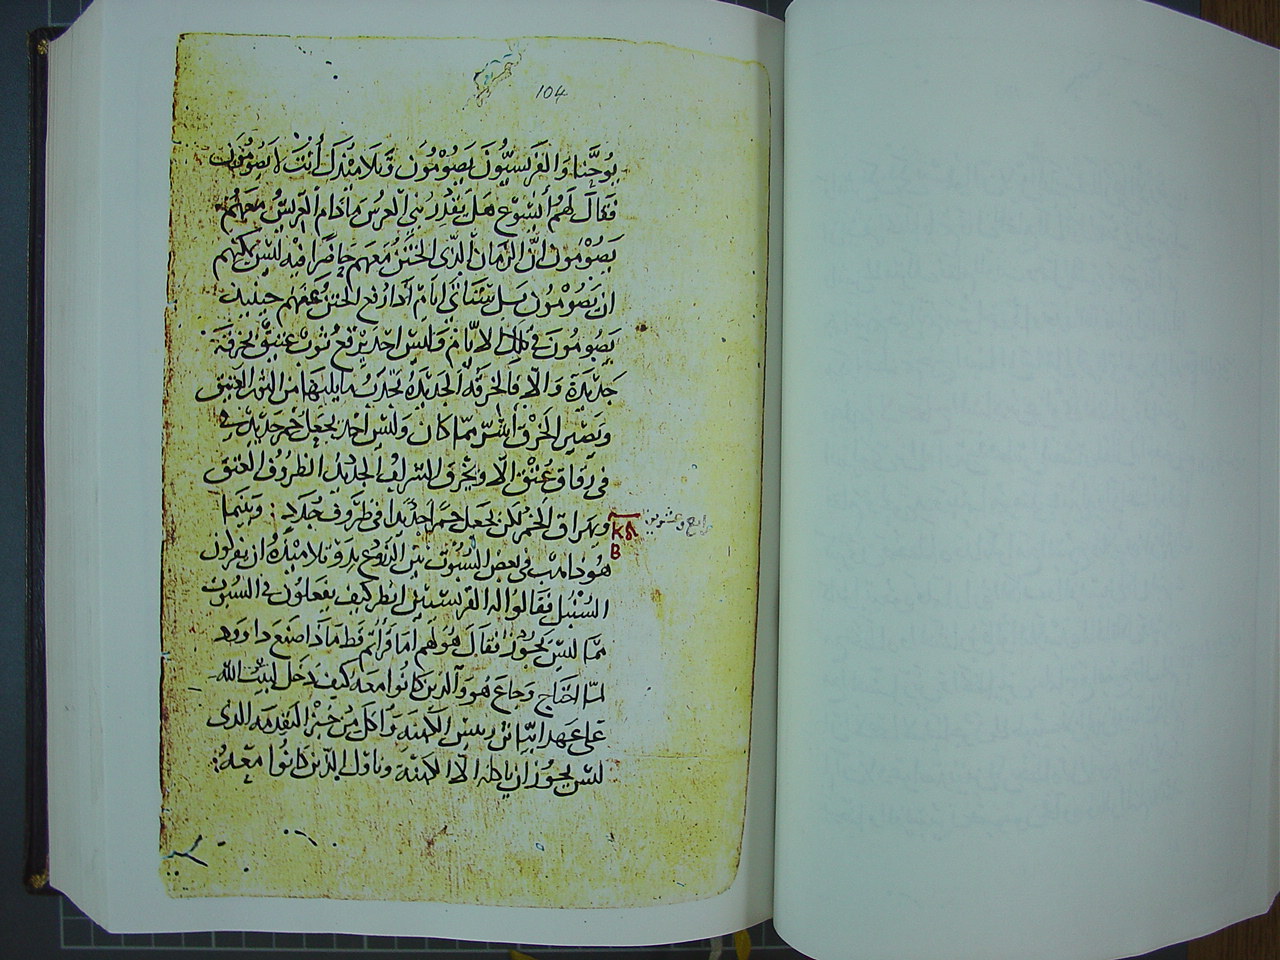 104
يُوحَنَّا وَالفَرِيسيُّونَ يَصُوْمُوَن وَتَلَامِيْذِكَ أَنْتَ لَا يَصُومُون
فَقَالَ لَهُمُ أيسُوْع هَل يَقْدِرُ بَنِي العرسَ مَا دَام العَريسُ مَعَهُم
يَصُوْمُون انَّ الزمَان الَّذِى الخَتَنُ مَعَهم حَاضراً فِيهِ لَيْسَ يمكنهم
ان يَصُوْمُون بَل سَتَاتى ايَامٌ اذا رُفع الخَتَنُ عَنهُم حينيذٍ
يَصُومُونَ فى تلك الايَّام وَليس احَد يرقع ثوبٌ عتيقٌ بخرقَة
جَدِيْدَة وَالَّا فالخرقَه الجَدِيدَه تَجْذبُ مَا يليَها مِن الثوب العَتِيق
وَيَصْيِر الخَرْق أشَرّ ممَّا كان وَليس احَد يَجْعَل خَمر جَدِيْد فى
فى زقاق عُتْق الّا وَيخْرق الشراب الجديد الظروُف العتق
وَيهراق الخَمْر لكن يَجعَل خمراً جَدِيْداً فى ظرُوف جُدَدٍ : وَبَينَما
رابع وعشرين
ⲕⲇ
ⲃ
هُو ذاهب فى بَعض السُبُوت بَين الزرُوع بَدَوُ تلاميْذهُ ان يفركون
السُنْبُل فَقَالُوا له الفرِيسيّين انظر كيف يفعلُون فى السُبُوت
ممَّا ليسَ يَجُوْز فقَالَ هُو لَهم امَا قَرأتُم قط مَاذا صنَعَ داوود
لمَّا احْتَاج وَجَاعَ هُوَ وَالَّذين كانُوا مَعَه كَيف دَخَل لبَيْت الله
عَلى عهد ابيَّاثَر رييس الكهَنه وَاكَل مِن خبْز التقدِمَه الذى
لَيْس يَجُوْز ان ياكله الّا الكهنَة وناوَل الذين كانُوا مَعَهُ :